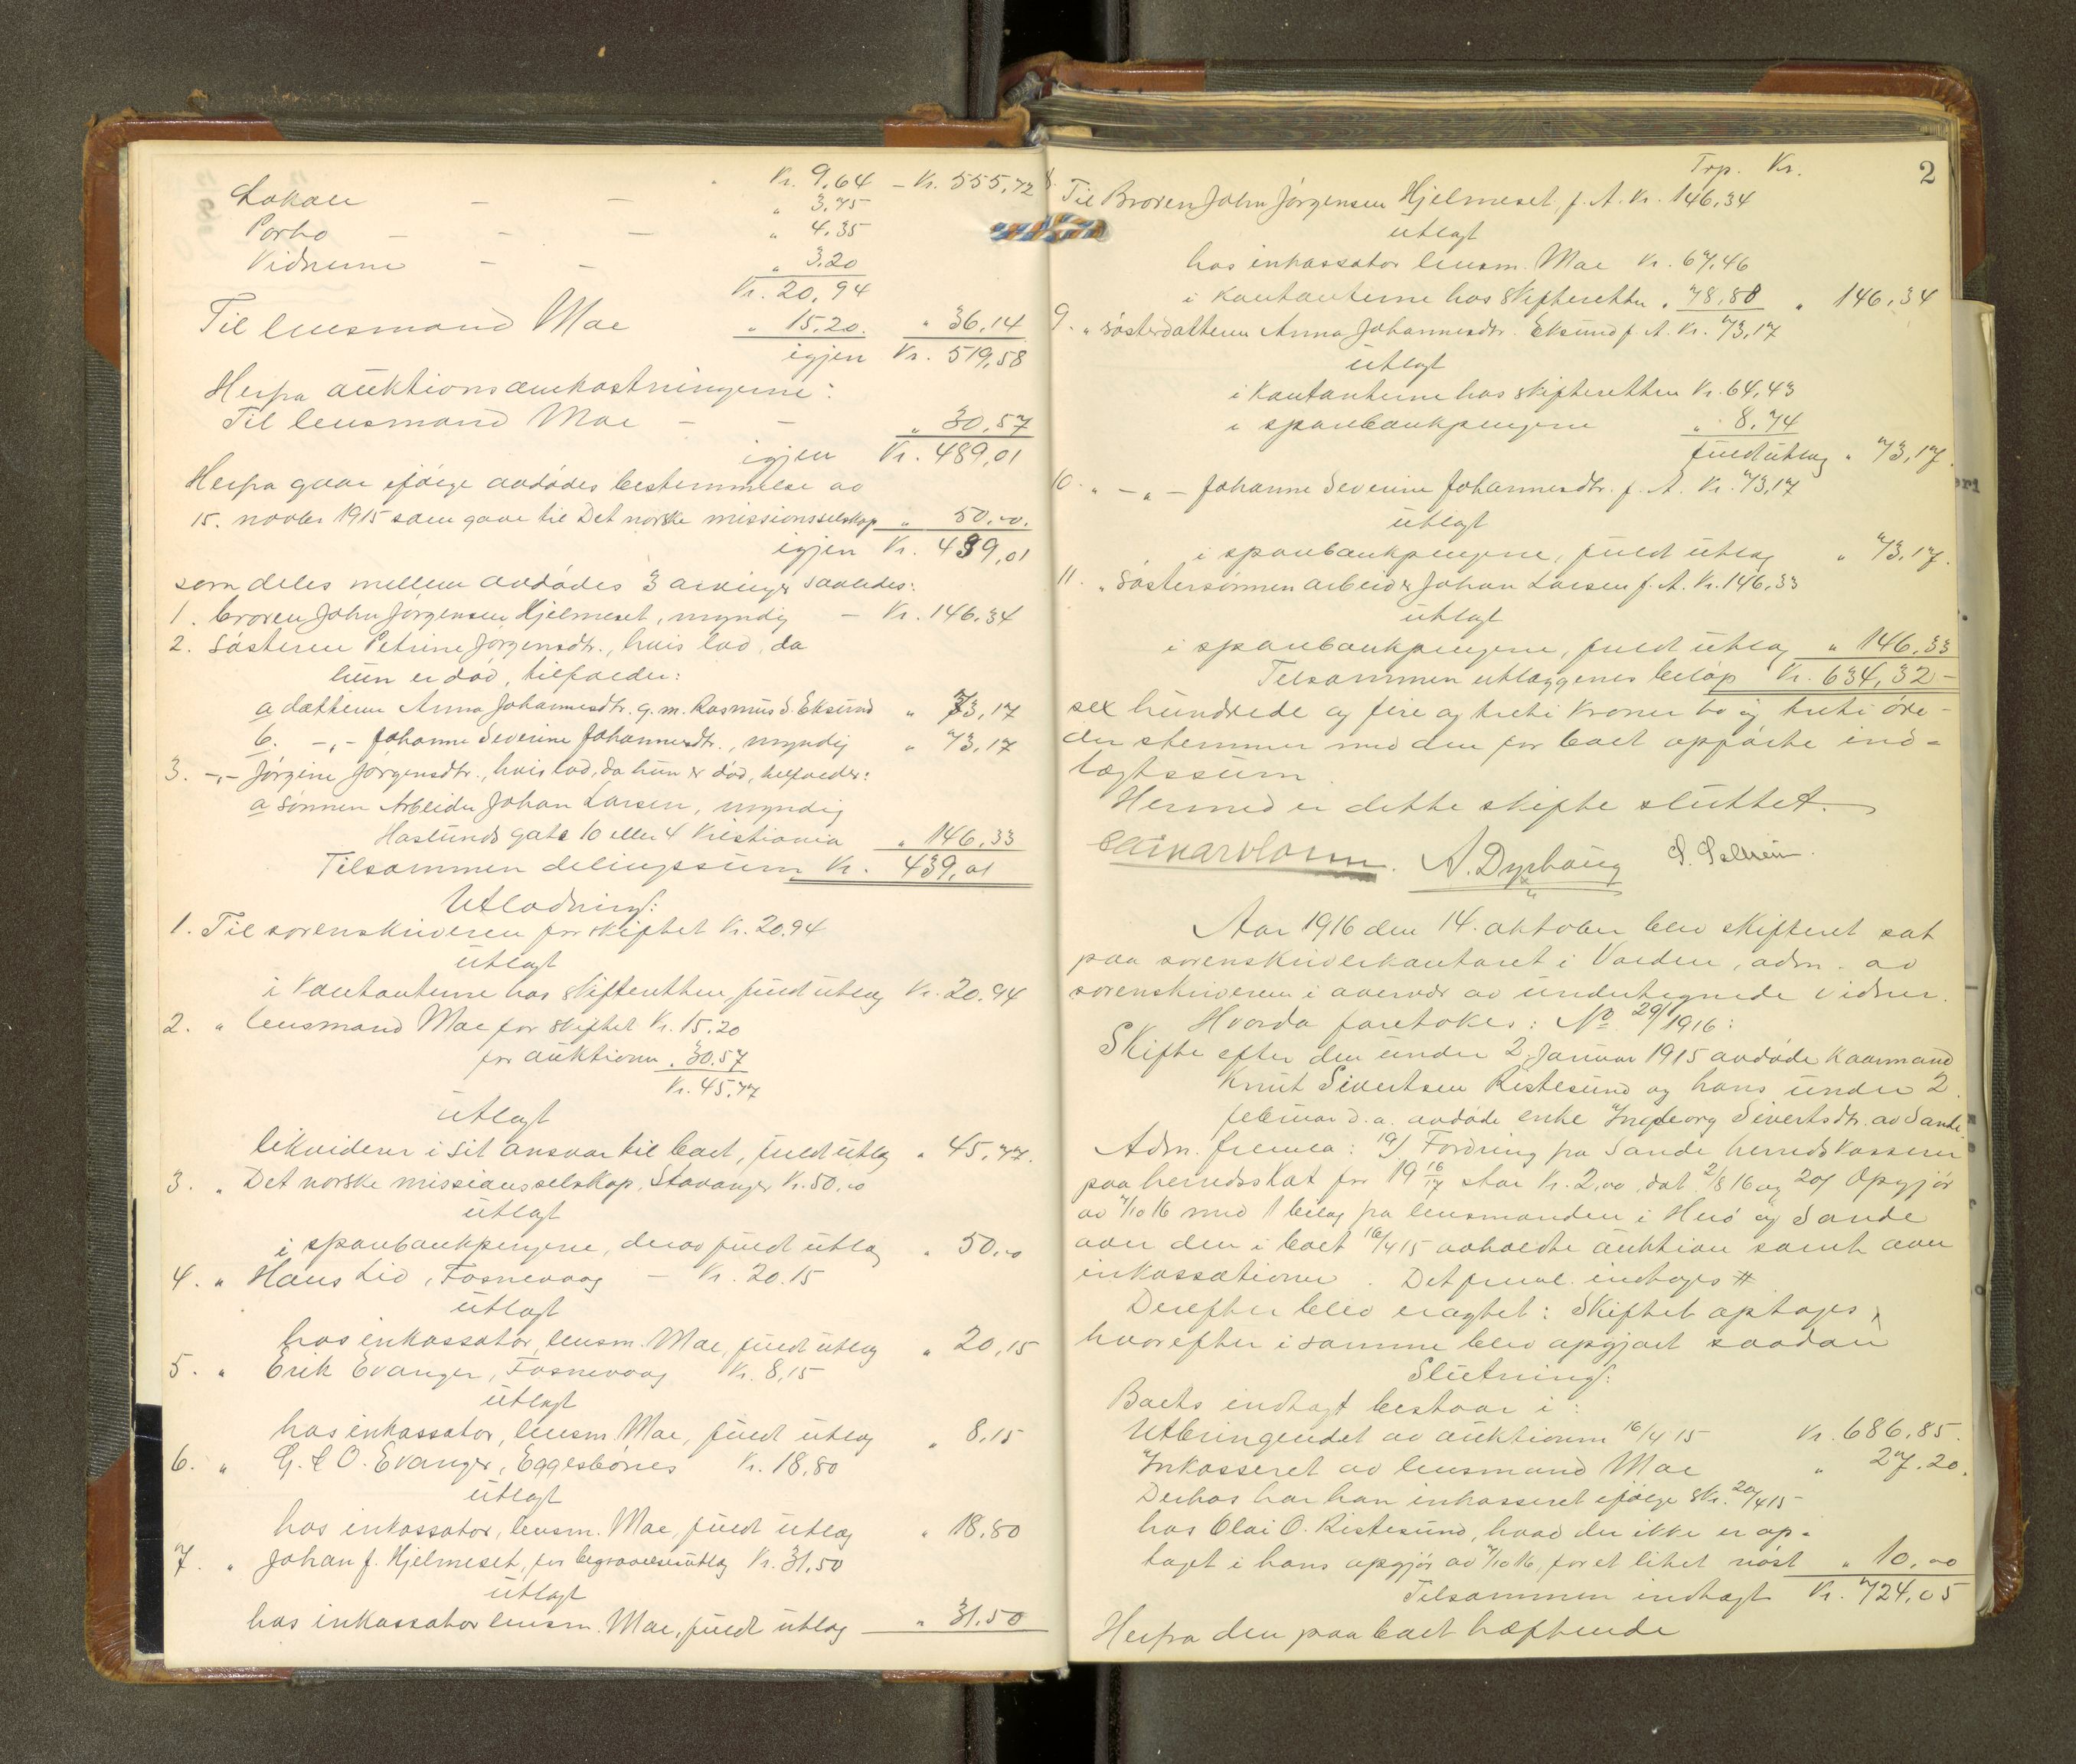 Kr. 9,64 – Kr. 555,72
Lokale – – " 3,75
Porto – – – " 4,35
Vidnerne – – " 3.20
Kr. 20,94
Til lensmand Moe " 15,20. " 36,14
igjen Kr. 519,58
Herfra auktionsomkostningerne:
Til lensmand Moe – – " 30,57
igjen Kr. 489,01
Herfra gaar ifølge avdødes bestemmelse av
15. novbr 1915 som gave til Det norske missionsselskap " 50.00.
igjen Kr. 439,01
som deles mellem avdødes 3 arvinger saaledes:
1. broren John Jørgensen Hjelmeset, myndig – Kr. 146,34
2. søsteren Petrine Jørgensdtr., hvis lod, da
hun er død, tilfalder:
a datteren Anna Johannesdtr. g. m. Rasmus S. Eksund " 73,17
b. –"– Johanne Severine Johannesdtr., myndig " 73,17
3. –"– Jørgine Jørgensdtr., hvis lod, da hun er død, tilfalder:
a sønnen Arbeider Johan Larsen, myndig
Haslunds gate 10 eller 4 Kristiania " 146,33
Tilsammen delingssum Kr. 439,01
Utlodning:
1. Til sorenskriveren for skiftet Kr. 20.94
utlagt
i kontanterne hos skifteretten, fuldt utlæg Kr. 20.94
2. " lensmand Moe for skiftet Kr. 15.20
for auktionen " 30.57
Kr. 45,77
utlagt
likviderer i sit ansvar til boet, fuldt utlæg " 45,77.
3. " Det norske missionsselskap, Stavanger Kr. 50,00
utlagt
i sparebankpengene, derav fuldt utlæg " 50,00
4. " Hans Lid, Fosnevaag – Kr. 20.15
utlagt
hos inkassator, lensm. Moe, fuldt utlæg " 20,15
5. " Erik Evanger, Fosnevaag Kr. 8,15
utlagt
hos inkassator, lensm. Moe, fuldt utlæg " 8,15
6. " G. & O. Evanger, Eggesbønes Kr. 18,80
utlagt
hos inkassator, lensm. Moe, fuldt utlæg " 18,80
7. " Johan J. Hjelmeset, for begravelsesutlæg Kr. 31,50
utlagt
hos inkassator lensm. Moe, fuldt utlæg " 31.50
Trp. Kr. 2
8. Til Broren John Jørgensen Hjelmeset f. A. Kr. 146,34
utlagt
hos inkassator lensm. Moe Kr. 67,46
i kontanterne hos skifteretten " 78,88 " 146,34
9. " søsterdatteren Anna Johannesdtr. Eksund f. A. Kr. 73,17
utlagt
i kontanterne hos skifteretten Kr. 64,43
i sparebankpengene " 8,74
fuldt utlæg " 73,17.
10. " –"– Johanne Severine Johannesdtr. f. A. Kr. 73,17
utlagt
i sparebankpengene, fuldt utlæg " 73,17.
11. " søstersønnen arbeider Johan Larsen f. A. Kr. 146,33
utlagt
i sparebankpengene, fuldt utlæg " 146,33
Tilsammen utlæggenes beløp Kr. 634,32 –
sex hundrede og fire og treti kroner to og treti øre –
der stemmer med den for boet opførte ind-
tægtssum.
Hermed er dette skifte sluttet.
A. Dyrhaug
Aar 1916 den 14. oktober blev skifteret sat
paa sorenskriverkontoret i Volden, adm. av
sorenskriveren i overvær av undertegnede vidner.
Hvorda foretokes: No 29/1916:
Skifte efter den under 2. januar 1915 avdøde kaarmand
Knut Sivertsen Ristesund og hans under 2
februar d. a. avdøde enke Ingeborg Sivertsdtr. av Sande.
Adm. fremla: 1o/ Fordring fra Sande herredskasserer
paa herredsskat for 19 16/17 stor Kr. 2,00, dat. 2/8 16 og 2o/ Opgjør
av 7/10 16 med 1 bilag fra lensmanden i Herø og Sande
over den i boet 16/4 15 avholdte auktion samt over
inkassationer. Det freml. indtages #
Derefter blev eragtet: Skiftet optages,
hvorefter i samme blev opgjort saadan
Slutning:
Boets indtægt bestaar i:
Utbringendet av auktionen 16/4 15 Kr. 686,85.
Inkasseret av lensmand Moe " 27.20.
Derhos har han inkasseret ifølge Skr. 20/4 15
hos Olai O. Ristesund, hvad der ikke er op-
taget i hans opgjør av 7/10 16, for et litet nøst " 10,00
Tilsammen indtægt Kr. 724,05
Herfra den paa boet hæftende